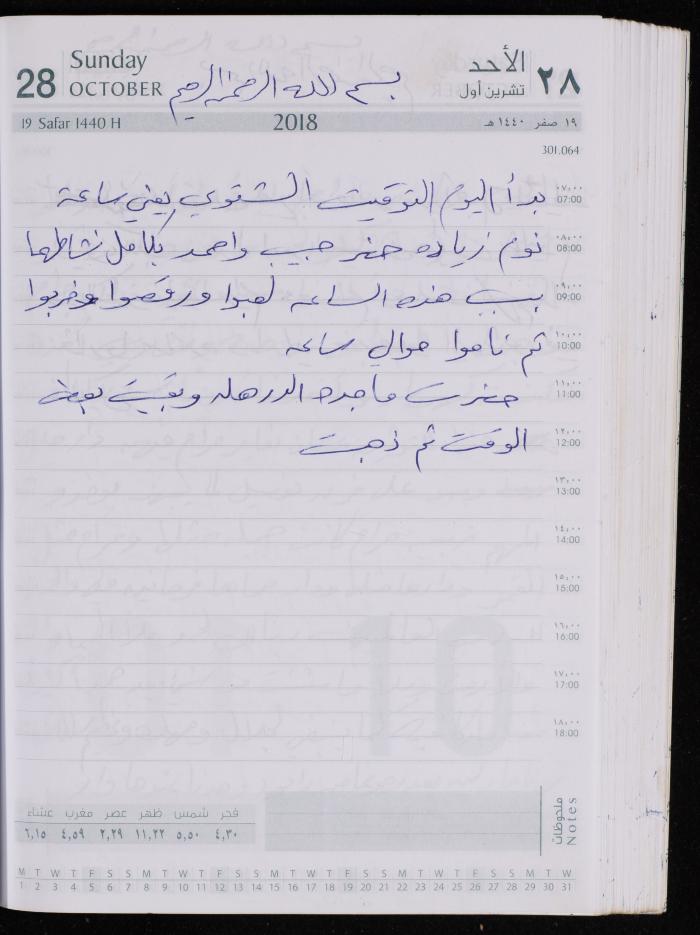 28 Sunday OCTOBER
الأحد ٢٨
تشرين أول
بسم الله الرحمن الرحيم
19 Safar 1440 H 2018 ١٩ صفر ١٤٤٠ هـ
301.064
بدأ اليوم التوقيت الشتوي يعني ساعة
نوم زياده حضر حبيب واحمد بكامل نشاطهما
هذه الساعه لعبوا ورقصوا وخربوا
ثم ناموا حوالي ساعه
حضرت ماجده وبقيت بعض
الوقت ثم ذهبت
٠٧:٠٠
07:00
٠٨:٠٠
08:00
٠٩:٠٠
09:00
١٠:٠٠
10:00
١١:٠٠
11:00
١٢:٠٠
12:00
١٣:٠٠
13:00
١٤:٠٠
14:00
١٥:٠٠
15:00
١٦:٠٠
16:00
١٧:٠٠
17:00
١٨:٠٠
18:00
10
ملحوظات
Notes
فجر شمس ظهر عصر مغرب عشاء
٤,٣٠ ٥,٥٠ ١١,٢٢ ٢,٢٩ ٤,٥٩ ٦,١٥
M T W T F S S M T W T F S S M T W T F S S M T W T F S S M T W
1 2 3 4 5 6 7 8 9 10 11 12 13 14 15 16 17 18 19 20 21 22 23 24 25 26 27 28 29 30 31